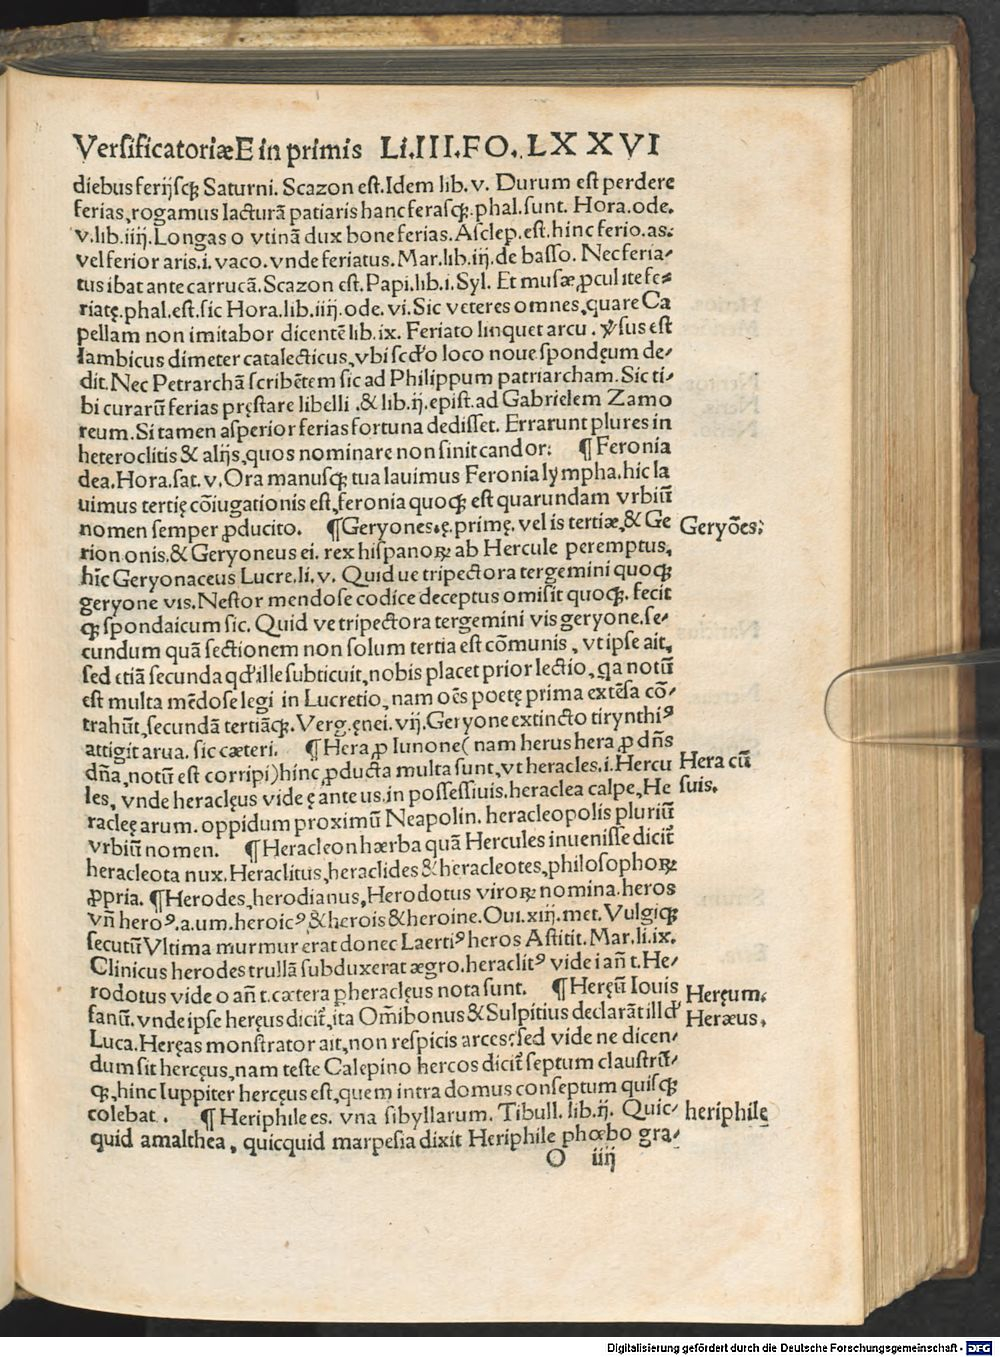 VersificatoriæE in primis LI.III.FO. LXXVI
diebus ferijsqꝫ Saturni. Scazon est. Idem lib. v. Durum est perdere
ferias, rogamus Iacturã patiaris hanc ferasqꝫ. phal. sunt. Hora. ode.
v. lib. iiij. Longas o vtinã dux bone ferias. Asclep. est. hinc ferio. as.
vel ferior aris. i. vaco. vnde feriatus. Mar. lib. iij. de basso. Nec feria⸗
tus ibat ante carrucã. Scazon est. Papi. lib. i. Syl. Et musæ ꝓcul ite fe⸗
riatę. phal. est. sic Hora. lib. iiij. ode. vi. Sic veteres omnes, quare Ca
pellam non imitabor dicentẽ lib. ix. Feriato linquet arcu. ꝟsus est
Iambicus dimeter catalecticus, vbi scďo loco noue spondęum de⸗
dit. Nec Petrarchã scribẽtem sic ad Philippum patriarcham. Sic ti⸗
bi curarũ ferias pręstare libelli. & lib. ij. epist. ad Gabrielem Zamo
reum. Si tamen asperior ferias fortuna dedisset. Errarunt plures in
heteroclitis & alijs, quos nominare non sinit candor. ¶ Feronia
dea. Hora. sat. v. Ora manusqꝫ tua lauimus Feronia lympha. hic la
uimus tertię cõiugationis est, feronia quoqꝫ est quarundam vrbiũ
nomen semper ꝓducito. ¶ Geryones. ę. primę. vel is tertiæ, & Ge
rion onis. & Geryoneus ei. rex hispanoꝝ ab Hercule peremptus.
hĩc Geryonaceus Lucre. li. v. Quid ue tripectora tergemini quoqꝫ
geryone vis. Nestor mendose codice deceptus omisit quoqꝫ. fecit
qꝫ spondaicum sic. Quid ve tripectora tergemini vis geryone. se⸗
cundum quã sectionem non solum tertia est cõmunis, vt ipse ait,
sed etiã secunda qď ille subticuit, nobis placet prior lectio, qa notũ
est multa mẽdose legi in Lucretio, nam oẽs poetę prima extẽsa cõ⸗
trahũt, secundã tertiãqꝫ. Verg. ęnei. vij. Geryone extincto tirynthiꝰ
attigit arua. sic cæteri. ¶ Hera ꝓ Iunone (nam herus hera ꝓ dñs
dña, notũ est corripi) hinc ꝓducta multa sunt, vt heracles. i. Hercu
les, vnde heraclęus vide ę ante us. in possessiuis. heraclea calpe, He
racleę arum. oppidum proximũ Neapolin. heracleopolis pluriũ
vrbiũ nomen. ¶ Heracleon hærba quã Hercules inuenisse dicit᷑
heracleota nux. Heraclitus, heraclides & heracleotes, philosophoꝝ
ꝓpria. ¶ Herodes, herodianus, Herodotus viroꝝ nomina. heros
vñ heroꝰ. a. um. heroicꝰ, & herois & heroine. Oui. xiij. met. Vulgiqꝫ
secutũ Vltima murmur erat donec Laertiꝰ heros Astitit. Mar. li. ix.
Clinicus herodes trullã subduxerat ægro. heraclitꝰ vide i añ t. He⸗
rodotus vide o añ t. cætera ꝑ heraclęus nota sunt. ¶ Heręũ Iouis
fanũ. vnde ipse heręus dicit᷑, ita Om̃ibonus & Sulpitius declarãt illď
Luca. Heręas monstrator ait, non respicis arces: sed vide ne dicen⸗
dum sit hercęus, nam teste Calepino hercos dicit᷑ septum claustrũ⸗
qꝫ, hinc Iuppiter hercęus est, quem intra domus conseptum quisqꝫ
colebat. ¶ Heriphile es. vna sibyllarum. Tibull. lib. ij. Quic⸗
quid amalthea, quicquid marpesia dixit Heriphile phœbo gra⸗
O iiij
Geryões:
Hera cũ
suis.
Heręum.
Heræus.
heriphile
Digitalisierung gefördert durch die Deutsche Forschungsgemeinschaft - DFG